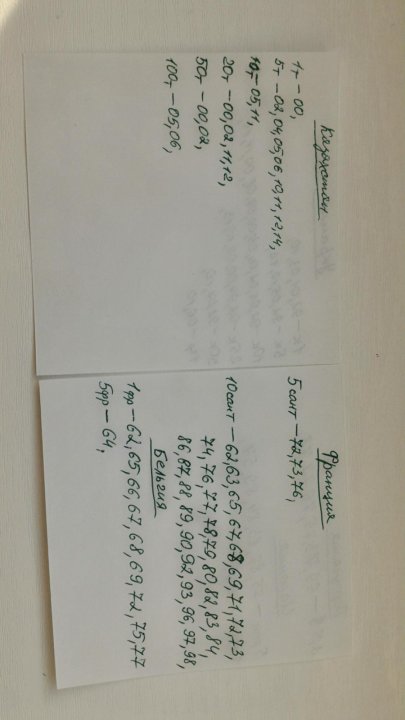 Казахстан
1т – 00,
5т – 02,04,05,06,10,11,12,14,
10т – 05,11,
20т – 00,02,11,12,
50т – 00,02,
100т – 05,06,
Франция
5 сант – 72,73,76,
10 сант – 62,63,65,67,68,69,71,72,73,
74,76,77,78,79,80,82,83,84,
86,87,88,89,90,92,93,96,97,98,
Бельгия
1 фр – 62,65,66,67,68,69,72,75,77
5 фр – 64,